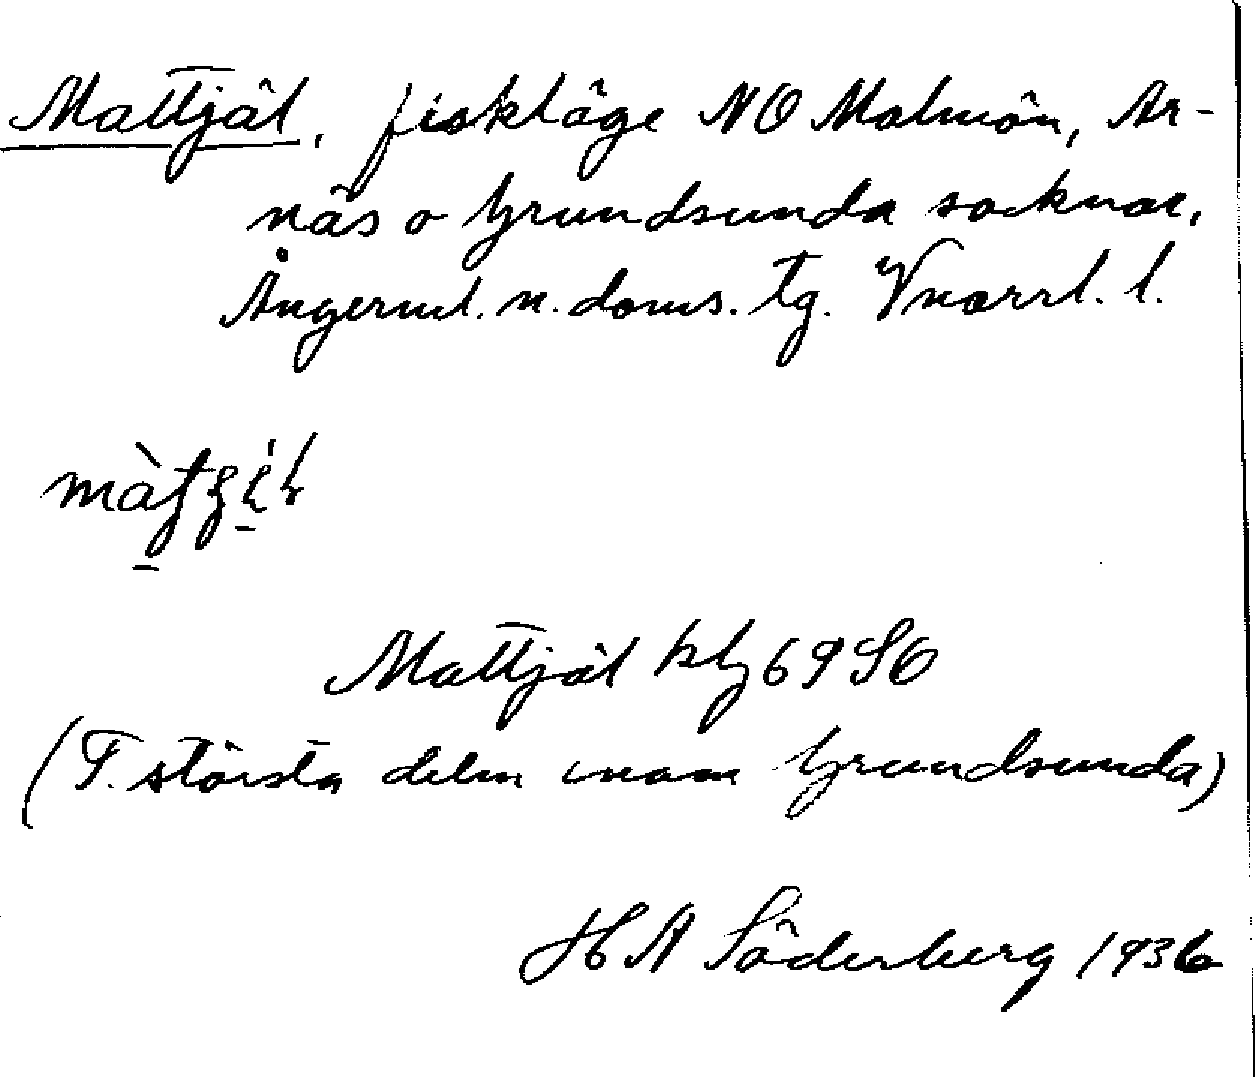 Mattjäl, fiskläge NO Malmön, Ar-
näs o Grundsunda socknar,
Ångerml. n. doms. tg. Vnorrl. l.
Mattjäl kbl 69 SO
(T. största delen inom Grundsunda)
H A Söderberg 1936